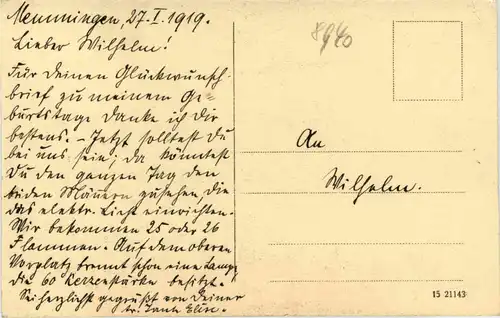 Memmingen, 27.I.1919.
Lieber Wilhelm!
Für deinen Glückwunsch-
brief zu meinem Ge-
burtstage danke ich dir
bestens. – Jetzt solltest du
bei uns sein; da könntest
Du den ganzen Tag den
beiden Männern zusehen die
das elektr. Licht einrichten.
Wir bekommen 25 oder 26
Flammen. Auf dem oberen
Vorplatz brennt schon eine Lampe
die 60 Kerzenstärke besitzt.
Sei herzlichst gegrüßt von Deiner
tr. Tante Elise.
8940
An
Wilhelm.
15 21143